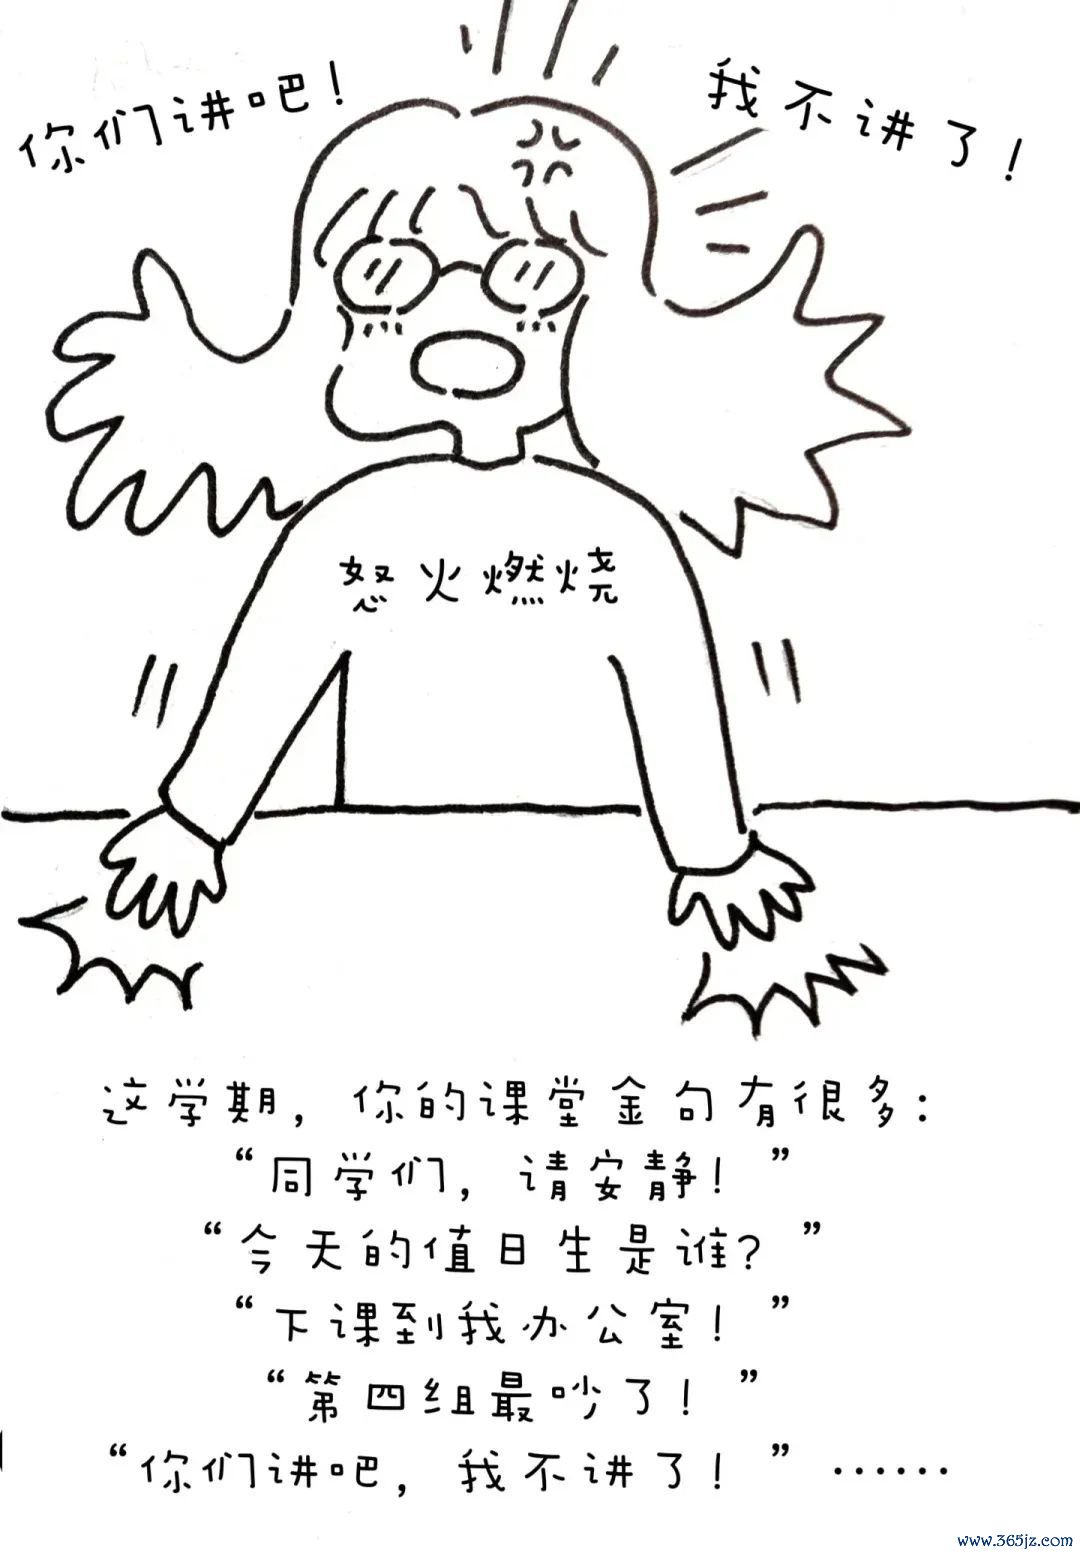 你们讲吧！
我不讲了！
怒火燃烧
这学期，你的课堂金句有很多：
“同学们，请安静！”
“今天的值日生是谁？”
“下课到我办公室！”
“第四组最吵了！”
“你们讲吧，我不讲了！”……
www.365jz.com